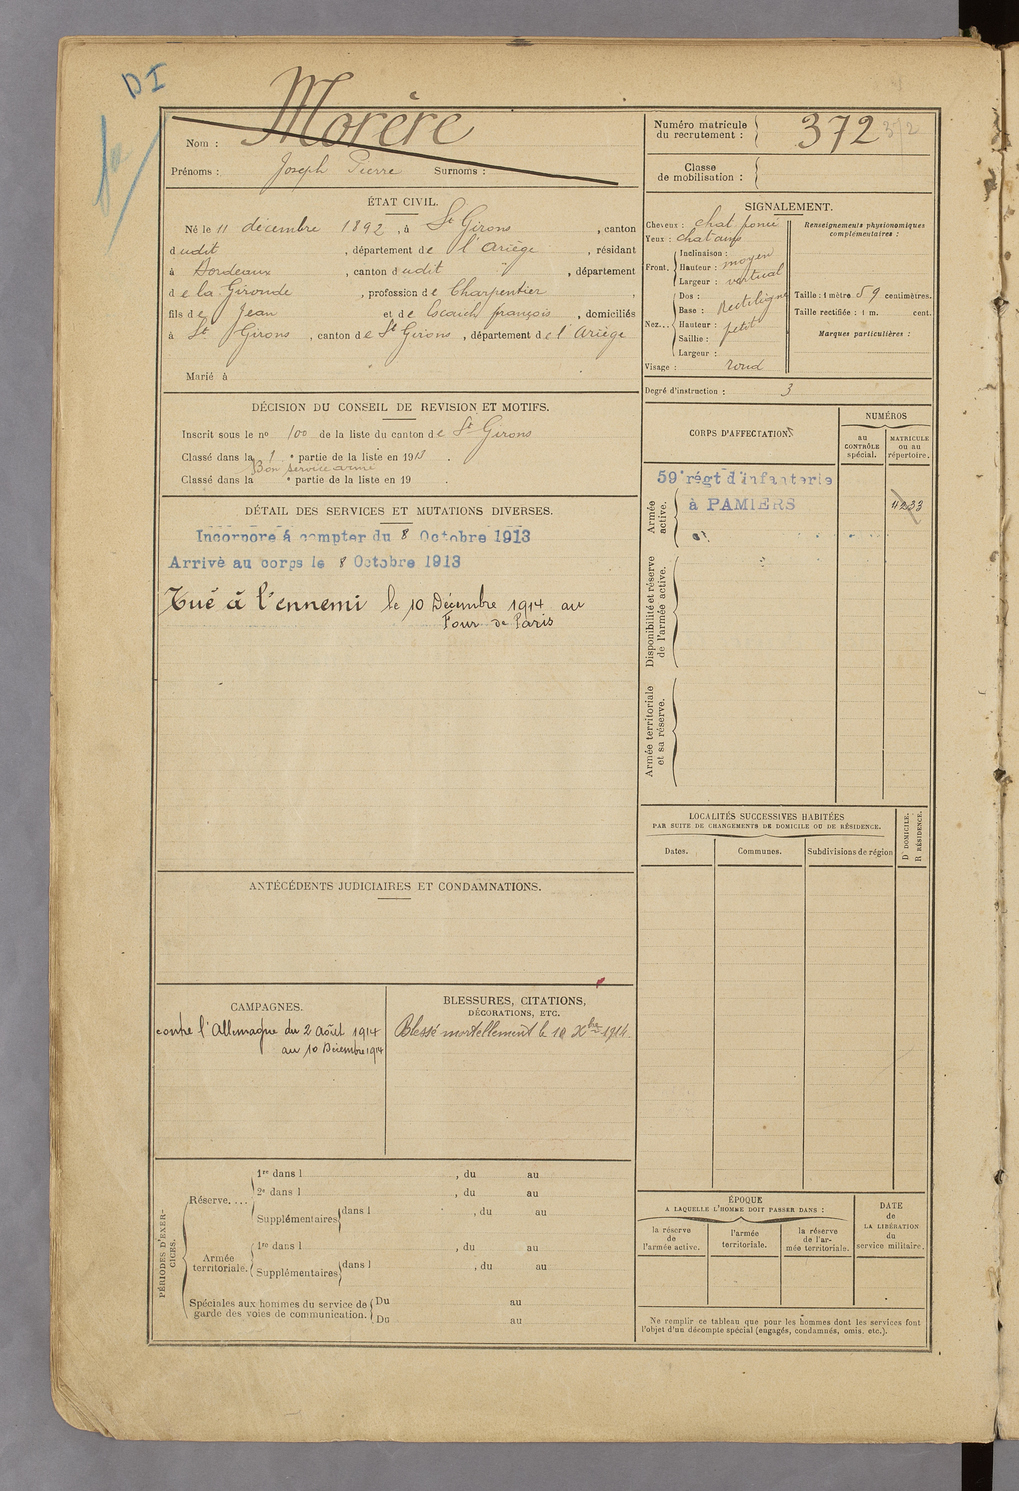 DI
Morère
Nom :
Prénoms : Joseph Pierre Surnoms :
ÉTAT CIVIL.
Né le 11 décembre 1892, à St Girons, canton
dudit, département de l'Ariège, résidant
à Bordeaux, canton dudit, département
de la Gironde, profession de Charpentier,
fils de Jean et de Escaich françois, domiciliés
à St Girons, canton de St Girons, département de l'Ariège
Marié à
DÉCISION DU CONSEIL DE REVISION ET MOTIFS.
Inscrit sous le no 100 de la liste du canton de St Girons
Classé dans la 1 e partie de la liste en 1913.
Bon service armé
Classé dans la e partie de la liste en 19
DÉTAIL DES SERVICES ET MUTATIONS DIVERSES.
Incorporé à compter du 8 Octobre 1913
Arrivé au corps le 8 Octobre 1913
Tué à l'ennemi le 10 Décembre 1914 au
Four de Paris
ANTÉCÉDENTS JUDICIAIRES ET CONDAMNATIONS.
CAMPAGNES.
contre l'Allemagne du 2 Août 1914
au 10 Décembre 1914
BLESSURES, CITATIONS,
DÉCORATIONS, ETC.
Blessé mortellement le 10 Xbre 1914
PÉRIODES D'EXER-
CICES.
Réserve....
1re dans l , du au
2e dans l , du au
Supplémentaires dans l , du au
Armée
territoriale.
1re dans l , du au
Supplémentaires dans l , du au
Spéciales aux hommes du service de
garde des voies de communication.
Du au
Du au
Numéro matricule
du recrutement : 372 372
Classe
de mobilisation :
SIGNALEMENT.
Cheveux : chat. foncé
Yeux : chatains
Front.
Inclinaison :
Hauteur : moyen
Largeur : vertical
Nez...
Dos :
Base : Rectiligne
Hauteur : petit
Saillie :
Largeur :
Visage : rond
Renseignements physionomiques
complémentaires :
Taille : 1 mètre 59 centimètres.
Taille rectifiée : 1 m. cent.
Marques particulières :
Degré d'instruction : 3
CORPS D'AFFECTATION
NUMÉROS
au
CONTRÔLE
spécial.
MATRICULE
ou au
répertoire.
59e régt d'infanterie
à PAMIERS
4233
Armée
active.
Disponibilité et réserve
de l'armée active.
Armée territoriale
et sa réserve.
LOCALITÉS SUCCESSIVES HABITÉES
PAR SUITE DE CHANGEMENTS DE DOMICILE OU DE RÉSIDENCE.
Dates.
Communes.
Subdivisions de région
D' DOMICILE.
R RÉSIDENCE.
ÉPOQUE
A LAQUELLE L'HOMME DOIT PASSER DANS :
la réserve
de
l'armée active.
l'armée
territoriale.
la réserve
de l'ar-
mée territoriale.
DATE
de
LA LIBÉRATION
du
service militaire.
Ne remplir ce tableau que pour les hommes dont les services font
l'objet d'un décompte spécial (engagés, condamnés, omis, etc.).